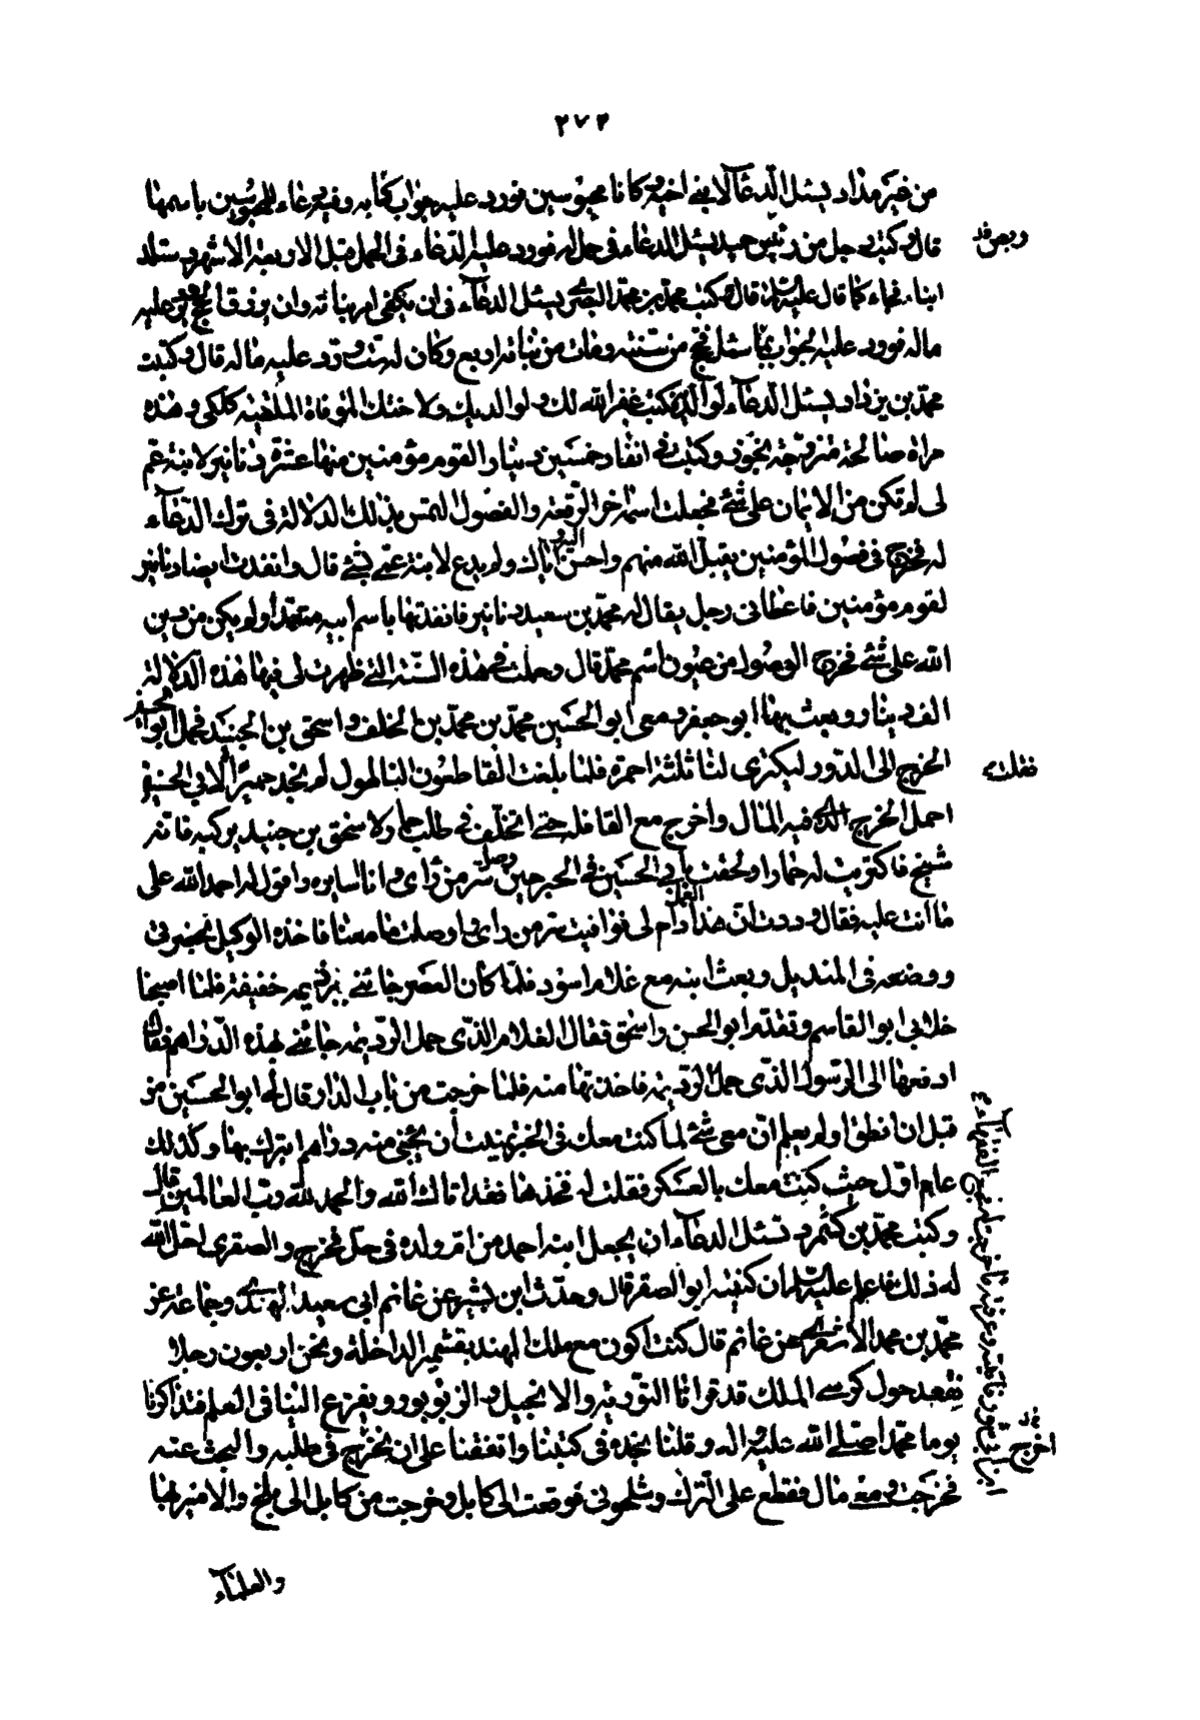 ٢٧٢
من غير مداد يسئل الدعآ لابنى اخيه و كانا محبوسين فورد عليه جواب كتابه وفيه دعاء للمحبوسين باسمهما
قال و كتب رجل من ربض حميد يسئل الدعاء فى حمل له فورد عليه الدعاء فى الحمل قبل الاربعة الاشهر و ستلد
ابناء فجاء كما قال عليه السلم قال و كتب محمد بن محمد البصرى يسئل الدعآء فى ان يكفى امر بناته وان يرزق الحج و يرد عليه
ماله فورد عليه الجواب بما سئل فحج من سنته و مات من بناته اربع و كان له ست و رد عليه ماله قال و كتب
محمد بن يزداد يسئل الدعآء لوالديه فكتب غفر الله لك و لوالديك ولاختك المتوفاة الملقبة كلكى و هذه
مراة صالحة متزوجة بجوار و كتبت فى انفاد خمسين دينارا لقوم مؤمنين منها عشرة دنانير لابنة عم
لى لم تكن من الايمان على شئ فجعلت اسمها اخر الرقعة والفصول التمس بذلك الدلالة فى ترك الدعآء
له فخرج فى فصول المؤمنين يقبل الله منهم واحسن اليهم واثابك ولم يدع لابنة عمى بشئ قال وانفدت ايضا دنانير
لقوم مؤمنين فاعطانى رجل يقال له محمد بن سعيد دنانير فانفدتها باسم ابيه متعمدا ولم يكن من دين
الله على شئ فخرج الوصول من عنوان اسم محمد قال وحملت فى هذه السنة التى ظهرت لى فيها هذه الدلالة
الف دينار و بعث بها ابو جعفر و معى ابو الحسين محمد بن محمد بن الخلف و اسحق بن الجنيد فحمل ابو الحسين
الخرج الى الدور ليكترى لنا ثلثة احمرة فلما بلغت القاطول لم نجد حميرا فقلت لابى الحسين
احمل الخرج الذى فيه المال واخرج مع القافلة حتى اتخلف فى طلب حمار لاسحق بن جنيد يركبه فانه
شيخ فاكتريت له حمارا ولحقت بابى الحسين فى الحير حين وصل سر من راى و انا اسايره و اقول له احمد الله على
ما انت عليه فقال وددت ان هذا العمل دام لى فوافيت سر من راى و اوصلت ما معنا فاخذه الوكيل بحضرتى
و وضعه فى المنديل و بعث به مع غلام اسود فلما كان العصر جائنى برزيمة خفيفة فلما اصبحنا
خلا بى ابو القاسم و تقدم ابو الحسن و اسحق فقال الغلام الذى حمل الرزيمة جائنى بهذه الدراهم فقال
ادفعها الى الرسول الذى حمل الرزيمة فاخذتها منه فلما خرجت من باب الدار قال لى ابو الحسين من
قبل ان انطق او لم يعلم ان معى شئ لما كنت معك فى الحير تمنيت ان يجئنى منه دراهم اتبرك بها و كذلك
عام اول حيث كنت معك بالعسكر فقلت له فخذها فقد اتاك الله والحمد لله رب العالمين قال
و كتب محمد بن كشمرد تسئل الدعآء ان يجعل ابنه احمد من ام ولده فى حل فخرج و الصقرى احل الله
له ذلك فاعلم عليه السلم ان كنيته ابو الصقر قال وحدث ابن بشير عن غانم ابى سعيد الهندى و جماعة عن
محمد بن محمد الاشعرى عن غانم قال كنت اكون مع ملك الهند بقشمير الداخلة و نحن اربعون رجلا
نقعد حول كرسى الملك قد قرانا التورية والانجيل و الزبور و يفزع الينا فى العلم فتذاكرنا
يوما محمدا صلى الله عليه و اله و قلنا نجده فى كتبنا و اتفقنا على ان نخرج فى طلبه والبحث عنه
فخرجت و معى مال فقطع على الترك و شلحونى فوقعت الى كابل و خرجت من كابل الى بلخ والامير بها
والعلماء